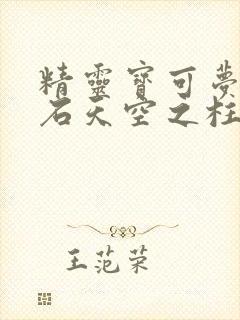 精靈寶可夢
石天空之柱
王范荣